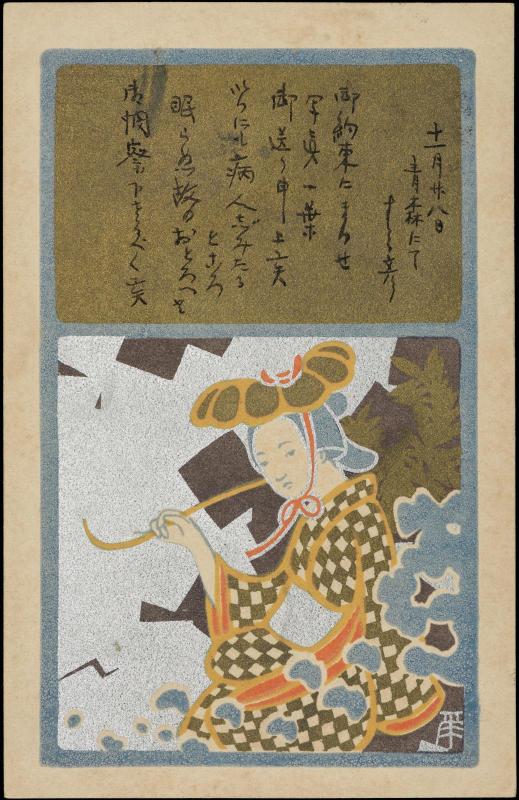 十一月廿八日
青森にて
御約束にまかせ
写真一葉
御送り申上候
いかにも病人じみたる
ところ
眠らぬ故のおとろへと
御憫察下さるべく候